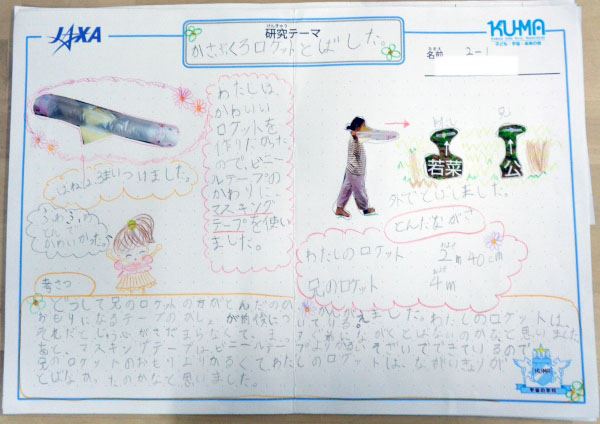 JAXA
研究テーマ
けんきゅう
かさぶくろロケットとばした。
KU-MA
子ども・宇宙・未来の会
名前
なまえ
2-1
わたしは、
かわいい
ロケットを
作りたかった
ので、ビニー
ルテープの
かわりに、
マスキング
テープを使い
ました。
はねは2まいつけました。
ふわふわ
とんで
かわいかった。
若菜
兄
公
外でとばしました。
とんだながさ
わたしのロケット 2m40cm
兄のロケット 4m
考さつ
どうして兄のロケットの方がとんだのか
かんがえました。わたしのロケットは、
おもりになるテープの
が前後についている。
それだとじゅう心がさだまらなくて、まっすぐ
ながくとばないのかなと思いました。
あと、マスキングテープはビニールテープよりかるいそざいでできているので、
兄のロケットのおもりよりかるくてわたしのロケットは、ながいきょりが
とばなかったのかなと思いました。
KU-MA
宇宙の学校